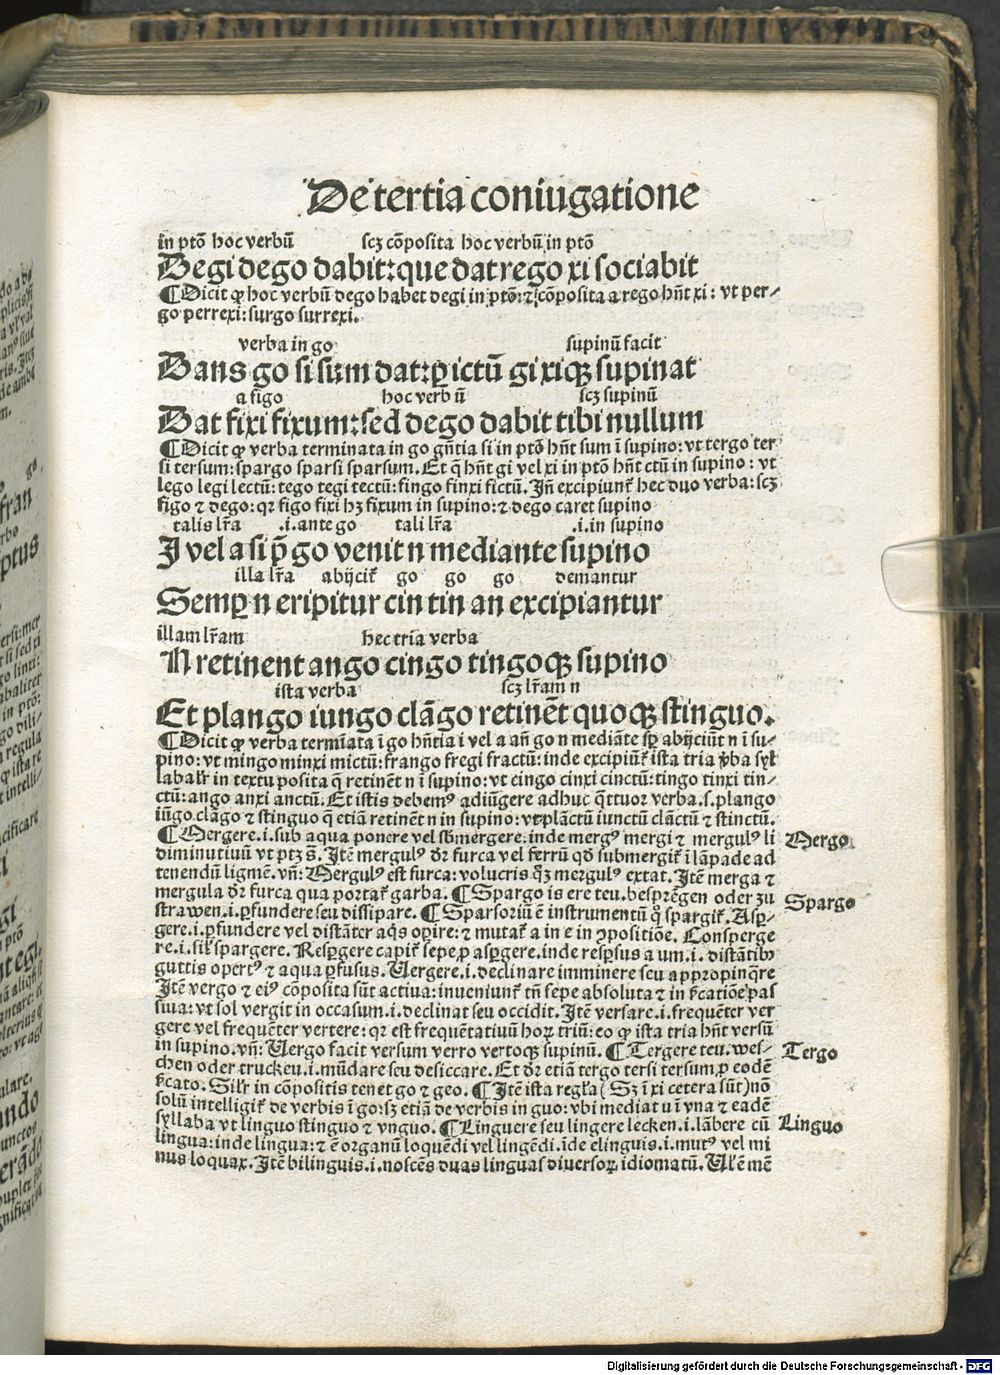 De tertia coniugatione
in ptõ hoc verbũ scꝫ cõposita hoc verbũ in ptõ
Degi dego dabit: que dat rego xi sociabit
¶ Dicit ꝙ hoc verbũ dego habet degi in ptõ: ⁊ cõposita a rego hñt xi: vt per-
go perrexi: surgo surrexi.
verba in go supinũ facit
Dans go si sum dat: ꝑ ictũ gi xiqꝫ supinat
a figo hoc verbũ scꝫ supinũ
Dat fixi fixum: sed dego dabit tibi nullum
¶ Dicit ꝙ verba terminata in go gñtia si in ptõ hñt sum ĩ supino: vt tergo ter
si tersum: spargo sparsi sparsum. Et q̃ hñt gi vel xi in ptõ hñt ctũ in supino: vt
lego legi lectũ: tego tegi tectũ: fingo finxi fictũ. Jñ excipiunt̃ hec duo verba: scꝫ
figo ⁊ dego: qꝛ figo fixi hꝫ fixum in supino: ⁊ dego caret supino
talis lr̃a .i. ante go tali lr̃a .i. in supino
J vel a si p̃ go venit n mediante supino
illa lr̃a abijcit̃ go go go demantur
Semꝑ n eripitur cin tin an excipiantur
illam lr̃am hec tria verba
N retinent ango cingo tingoqꝫ supino
ista verba scꝫ lr̃am n
Et plango iungo clãgo retinẽt quoqꝫ stinguo.
¶ Dicit ꝙ verba termĩata ĩ go hñtia i vel a añ go n mediãte sꝑ abijciũt n ĩ su-
pino: vt mingo minxi mictũ: frango fregi fractũ: inde excipiũt̃ ista tria ṽba syl
labalr̃ in textu posita q̃ retinẽt n ĩ supino: vt cingo cinxi cinctũ: tingo tinxi tin-
ctũ: ango anxi anctũ. Et istis debemꝰ adiũgere adhuc q̃ttuor verba. s. plango
iũgo clãgo ⁊ stinguo q̃ etiã retinẽt n in supino: vt plãctũ iunctũ clãctũ ⁊ stinctũ.
¶ Mergere .i. sub aqua ponere vel sbmergere: inde mergꝰ mergi ⁊ mergulꝰ li Mergo
diminutiuũ vt ptꝫ s̃. Jtẽ mergulꝰ dr̃ furca vel ferrũ qd̃ submergit̃ ĩ lãpade ad
tenendũ ligmẽ. vñ: Mergulꝰ est furca: volucris q̃ꝫ mergulꝰ extat. Jtẽ merga ⁊
mergula dr̃ furca qua portat̃ garba. ¶ Spargo is ere teu. besprẽgen oder zu Spargo
strawen .i. ꝑfundere seu dissipare. ¶ Sparsoriũ ẽ instrumentũ q̊ spargit̃. Asꝑ-
gere .i. ꝑfundere vel distãter aq̃s oꝑire: ⁊ mutat̃ a in e in ꝯpositiõe. Consperge
re .i. sil̃ spargere. Resꝑgere capit̃ sepe ꝓ asꝑgere. inde resꝑsus a um .i. distãtibꝰ
guttis opertꝰ ⁊ aqua ꝑfusus. Uergere .i. declinare imminere seu appropinq̃re
Jtẽ vergo ⁊ eiꝰ cõposita sũt actiua: inueniunt̃ tñ sepe absoluta ⁊ in s̃catiõe pas
siua: vt sol vergit in occasum .i. declinat seu occidit. Jtẽ versare .i. frequẽter ver
gere vel frequẽter vertere: qꝛ est frequẽtatiuũ hoꝝ triũ: eo ꝙ ista tria hñt versũ
in supino. vñ: Uergo facit versum verro vertoqꝫ supinũ. ¶ Tergere teu. wes- Tergo
chen oder trucken .i. mũdare seu desiccare. Et dr̃ etiã tergo tersi tersum ꝓ eodẽ
s̃cato. Silr̃ in cõpositis tenet go ⁊ geo. ¶ Jtẽ ista regl̃a (Sꝫ ĩ xi cetera sũt) nõ
solũ intelligit̃ de verbis ĩ go: sꝫ etiã de verbis in guo: vbi mediat u ĩ vna ⁊ eadẽ
syllaba vt linguo stinguo ⁊ vnguo. ¶ Linguere seu lingere lecken .i. lãbere cũ Linguo
lingua: inde lingua: ⁊ ẽ organũ loquẽdi vel lingẽdi. ĩde elinguis .i. mutꝰ vel mi
nus loquax. Jtẽ bilinguis .i. noscẽs duas linguas diuersoꝝ idiomatũ. Ul̃ ẽ mẽ
Digitalisierung gefördert durch die Deutsche Forschungsgemeinschaft - DFG